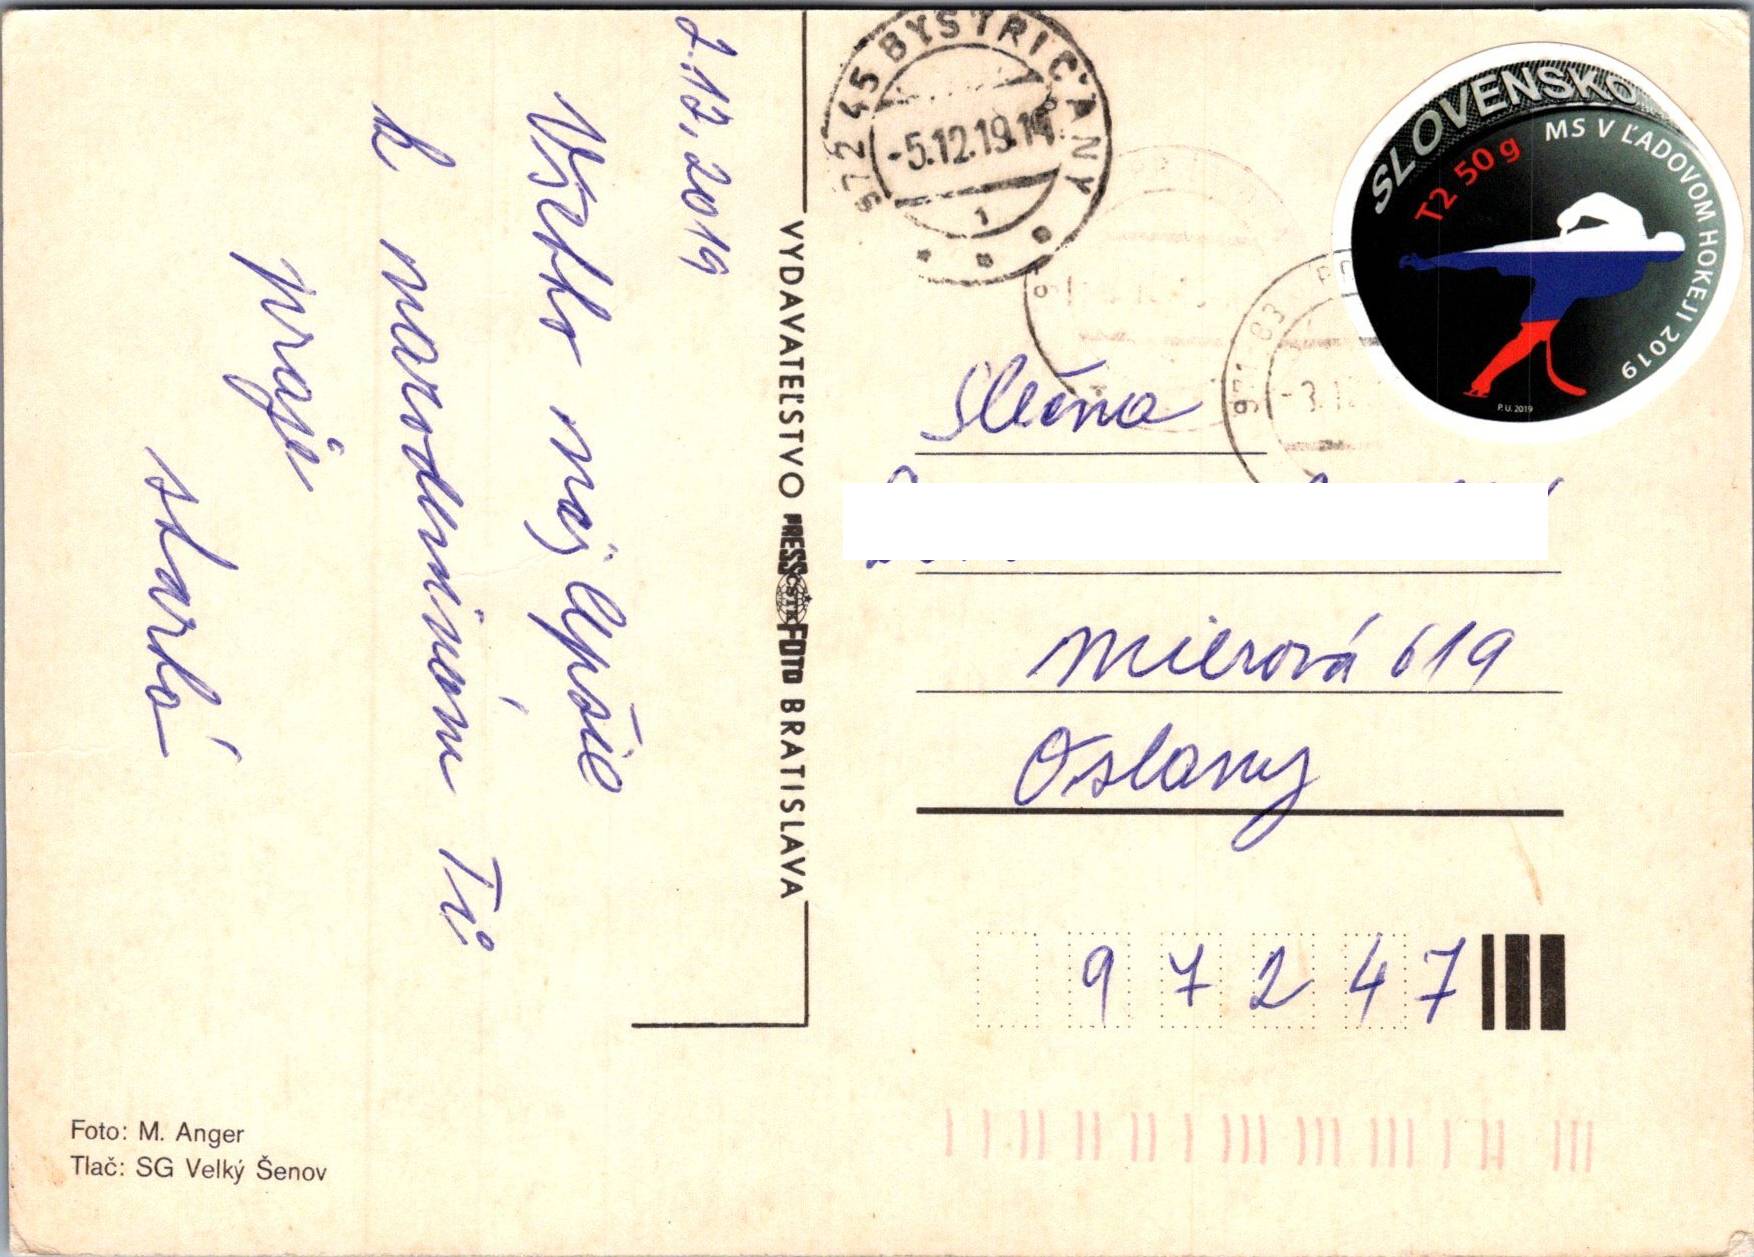 2.12.2019
Všetko najlepšie
k narodeninám Ti
praje
starká
VYDAVATEĽSTVO PRESSFOTO BRATISLAVA
ČSTK
972 45 BYSTRIČANY
-5.12.19.14
1
-3.12
SLOVENSKO
T2 50 g
MS V ĽADOVOM HOKEJI 2019
P.U. 2019
Slečna
Mierová 619
Oslany
97247
Foto: M. Anger
Tlač: SG Velký Šenov